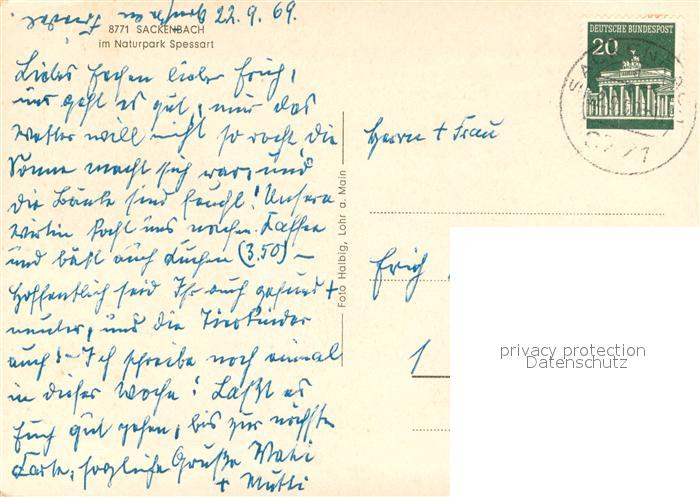 22.9.69.
8771 SACKENBACH
im Naturpark Spessart
Liebes lieber Erich,
uns geht es gut, nur das
Wetter will nicht so recht, die
Sonne macht sich rar, und
die Bänke sind feucht! Unsere
Wirtin kocht uns Kaffee
und bäkt auch Kuchen (3.50) –
Hoffentlich seid Ihr auch gesund +
munter, und die
auch! – Ich schreibe noch einmal
in dieser Woche! Laßt es
Euch gut gehen, bis zur nächsten
Karte, herzliche Grüße Vati
+ Mutti
Foto Halbig, Lohr a. Main
DEUTSCHE BUNDESPOST
20
8771
Herrn + Frau
Erich
1
privacy protection
Datenschutz